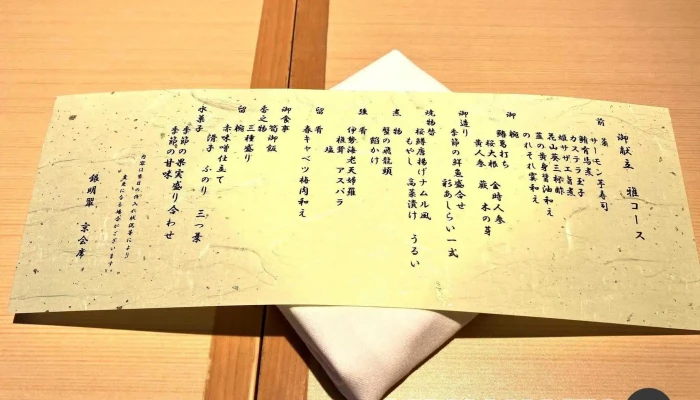 御献立 雅コース
前菜
サーモン手寿司
鮪有馬煮
カステラ玉子
姫サザエ旨煮
花山葵三杯酢
蓋の黄身醤油和え
のれそれ雲和え
御椀
鱧葛打ち
桜大根 金時人参
黄人参 蕨 木の芽
御造り
季節の鮮魚盛合せ
彩あしらい一式
焼物替
桜鱒唐揚げナムル風
もやし 高菜漬け うるい
煮物
蟹の飛龍頭
餡かけ
強肴
伊勢海老天婦羅
椎茸 アスパラ
塩
留肴
春キャベツ梅肉和え
御食事
筍御飯
香之物
三種盛り
留椀
赤味噌仕立て
滑子 ふのり 三つ葉
水菓子
季節の果実盛り合わせ
季節の甘味
内容は当日の仕入れ状況等により
変更になる場合がございます。
銀明翠 京会席